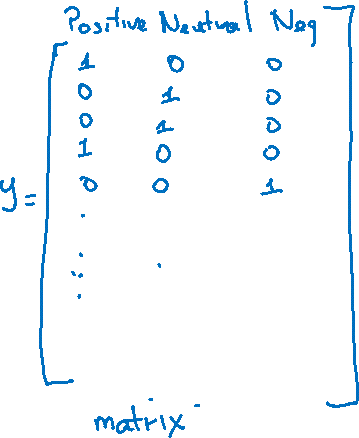 Positive Neutral Neg
1 0 0
0 1 0
0 1 0
1 0 0
y = 0 0 1
matrix